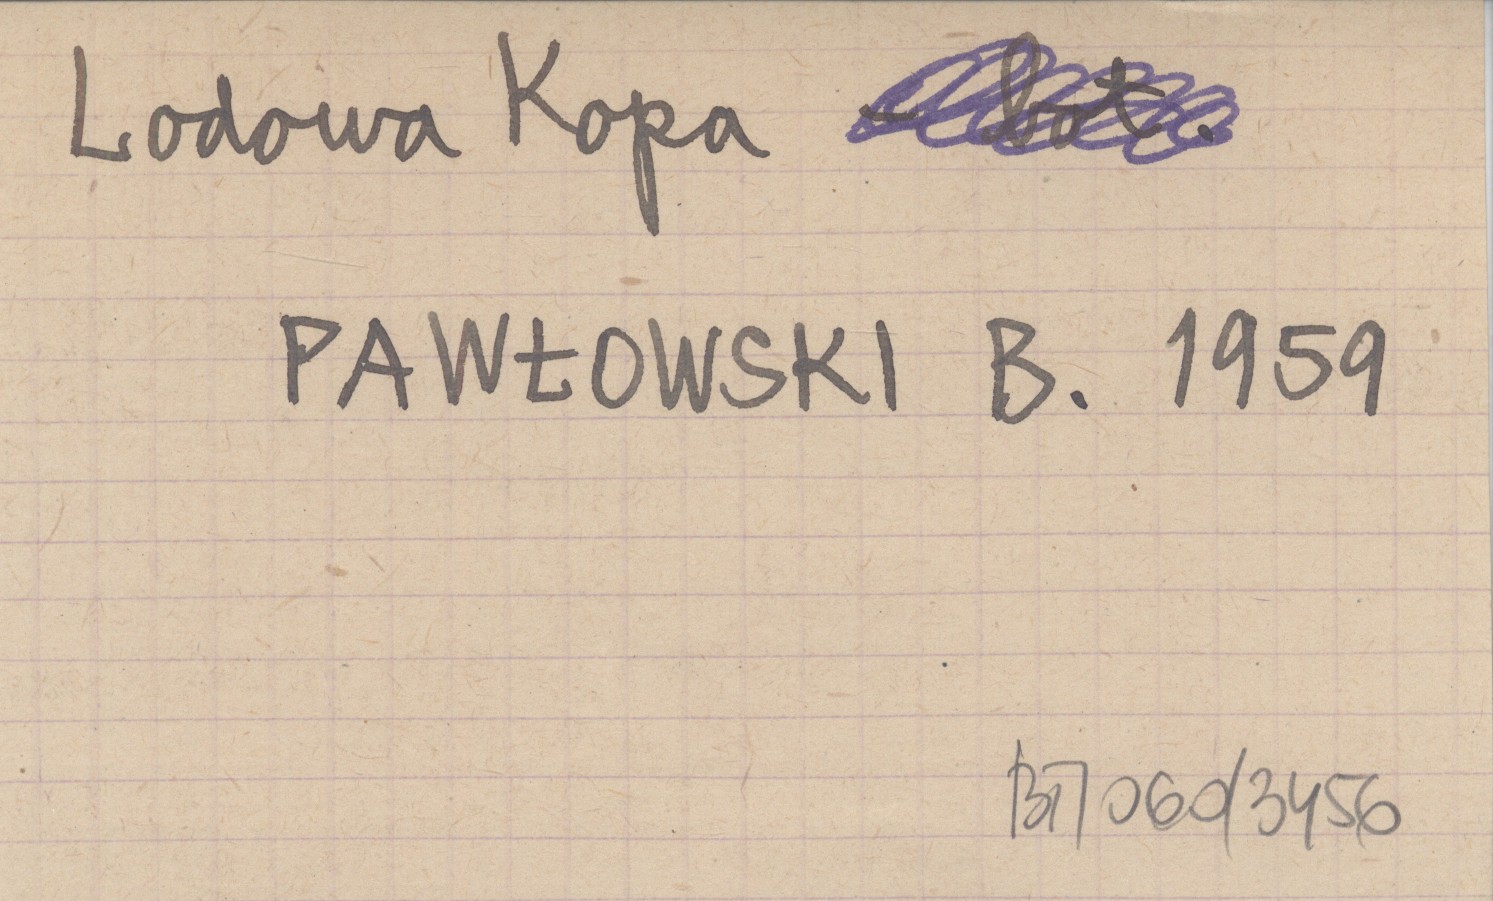 Lodowa Kopa - bot.
PAWŁOWSKI B. 1959
060/3456